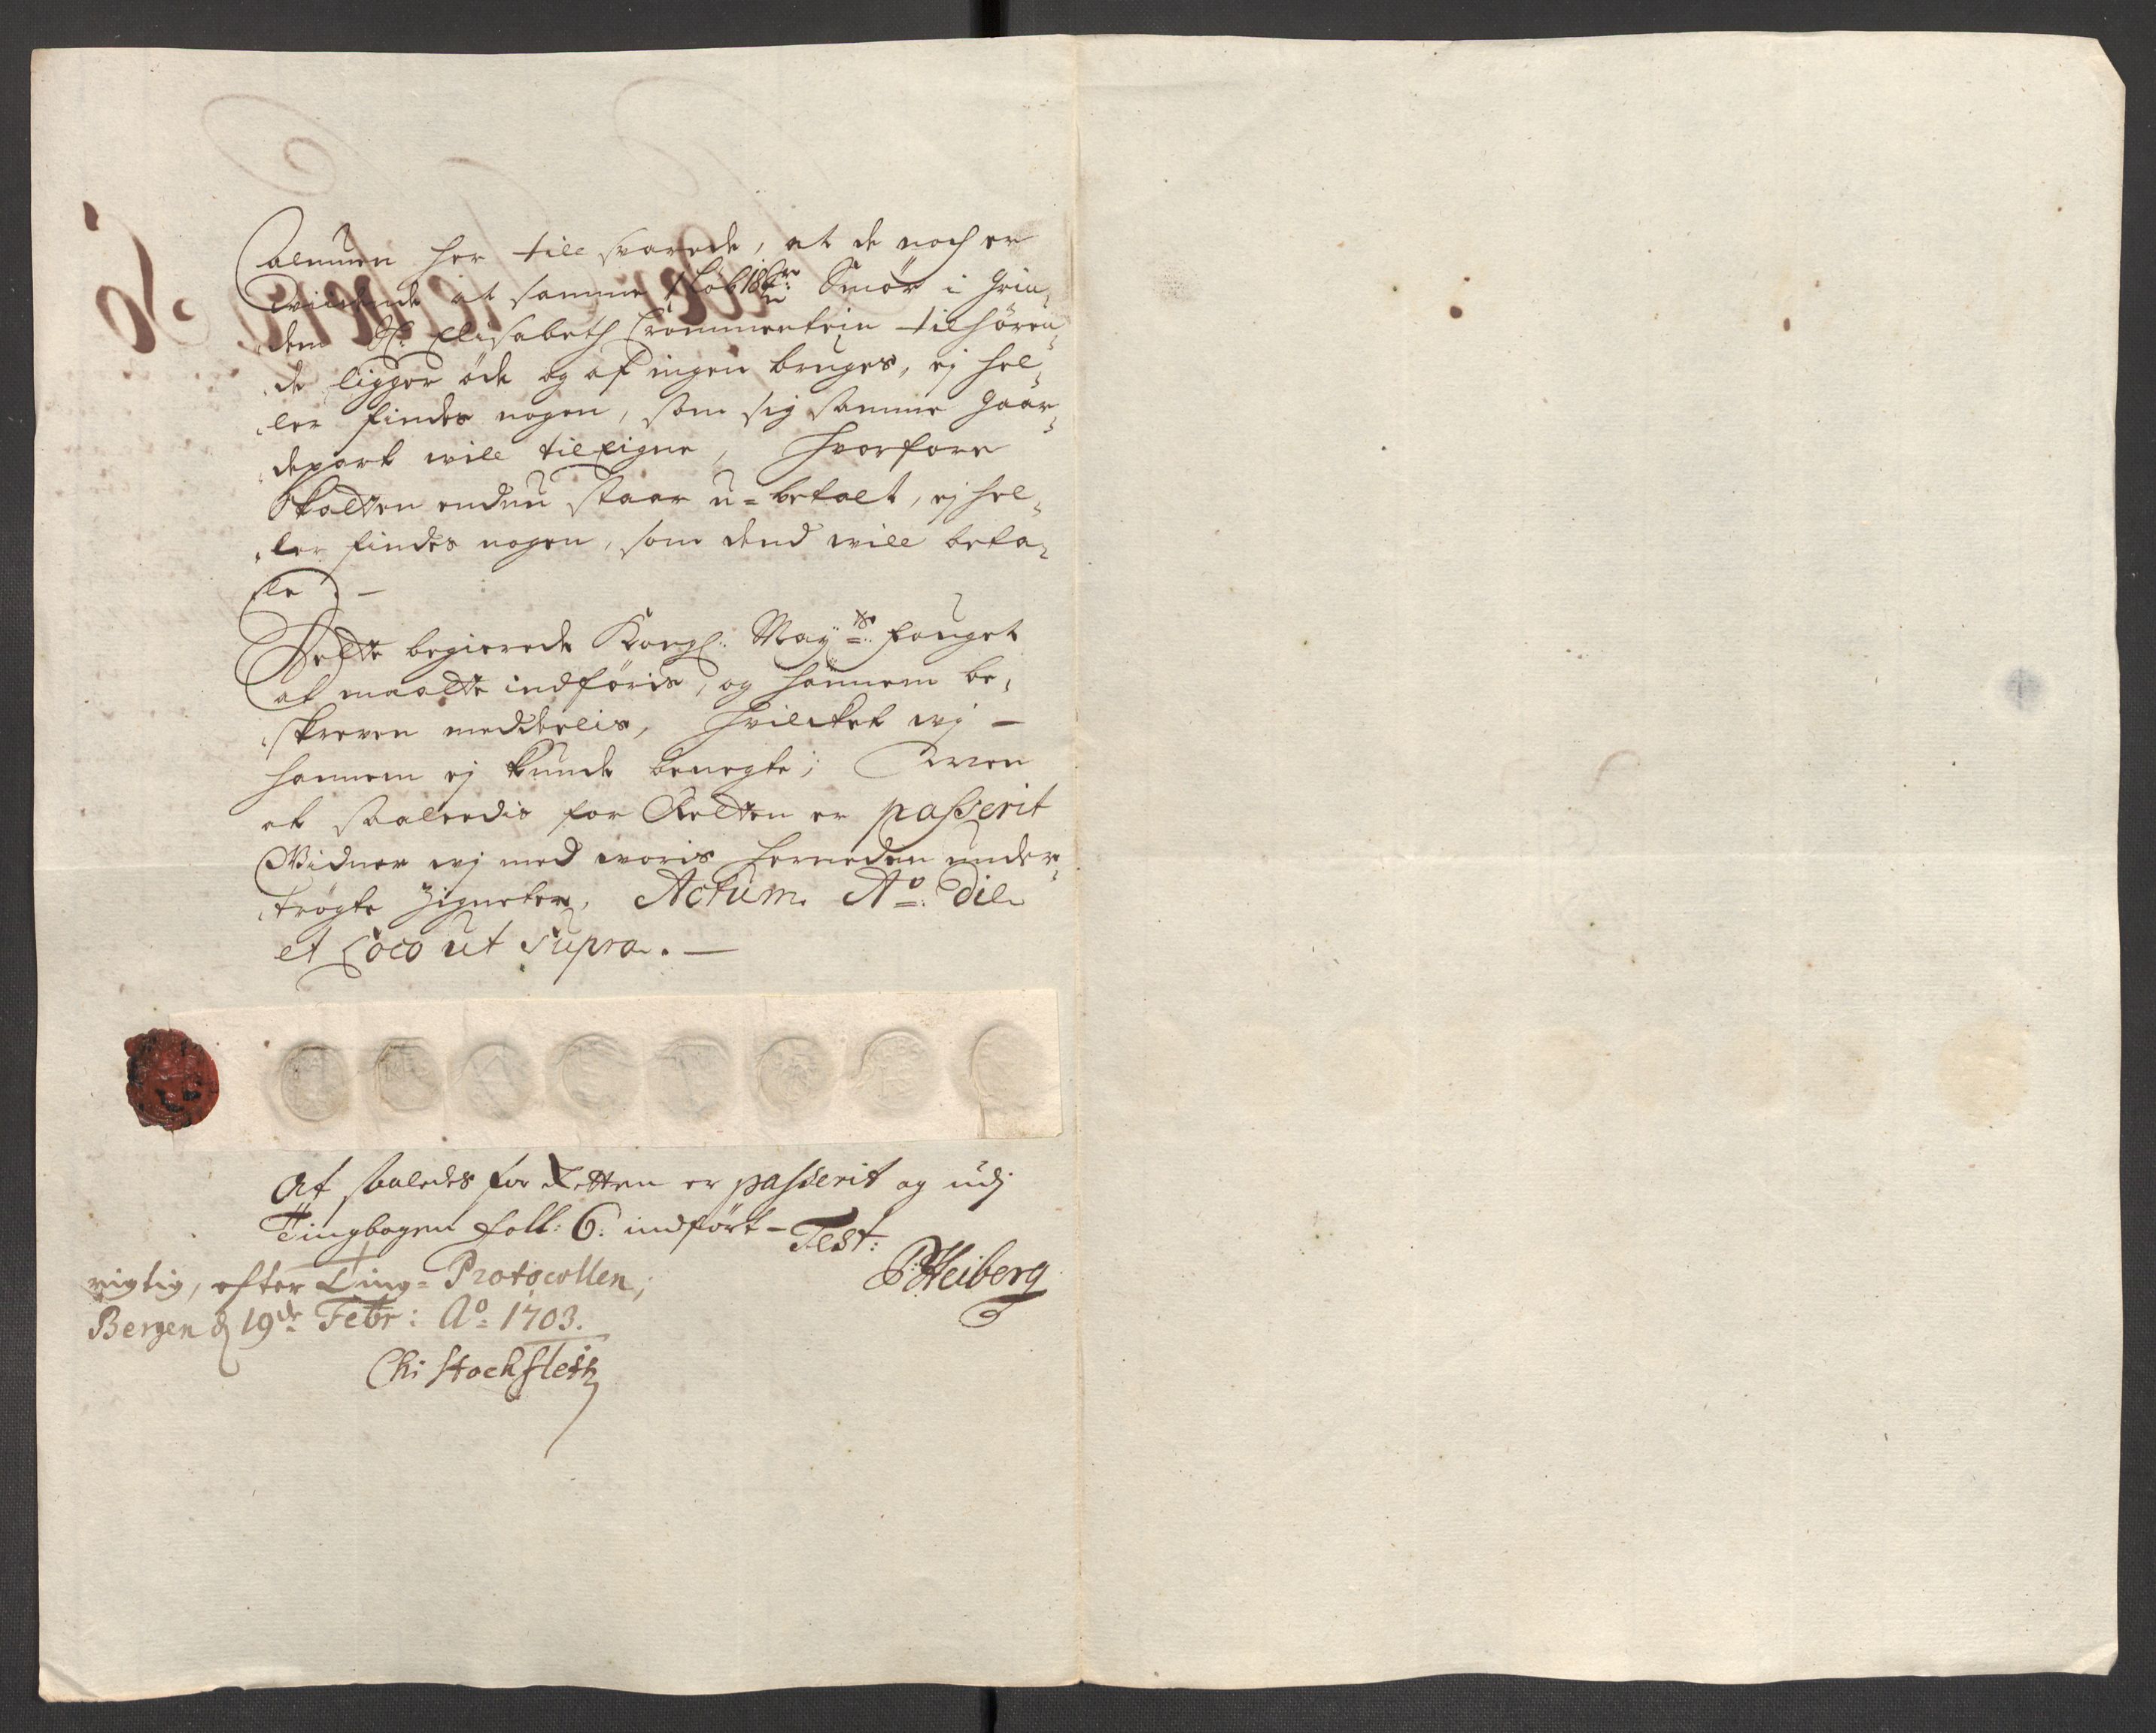 almuen her till svarede, at de noch er
vidende at samme 1 Løb 18 mrk: Smør i Grin„
„dem Sl: Elisabeth Crommentein tilhøren„
„de ligger øde og af ingen bruges, ej hel„
„ler findes nogen, som sig samme Gaar„
„depart will tileigne, hvorfore
Skatten endnu staar u-betalt, ej hel„
„ler findes nogen, som dend will beta„
„le. —
Dette begierede Kongl: May:ts fouget
at maatte indføris, og hannem be„
„skreven meddeelis, hvilcket vj —
hannem ej kunde benegte; Dessen
at saaleedis for Retten er passerit
Vidner vj med woris herneden under„
„trøgte Zigneter, Actum Ao. Die
et Loco ut supra. —
At saaledes for Retten er passerit og udj
Tingbogen foll: 6: indført – Test:
PHeiberg
rigtig, efter Ting-Protocollen,
Bergen d 19de Febr: Ao 1703.
Chr Stockfleth